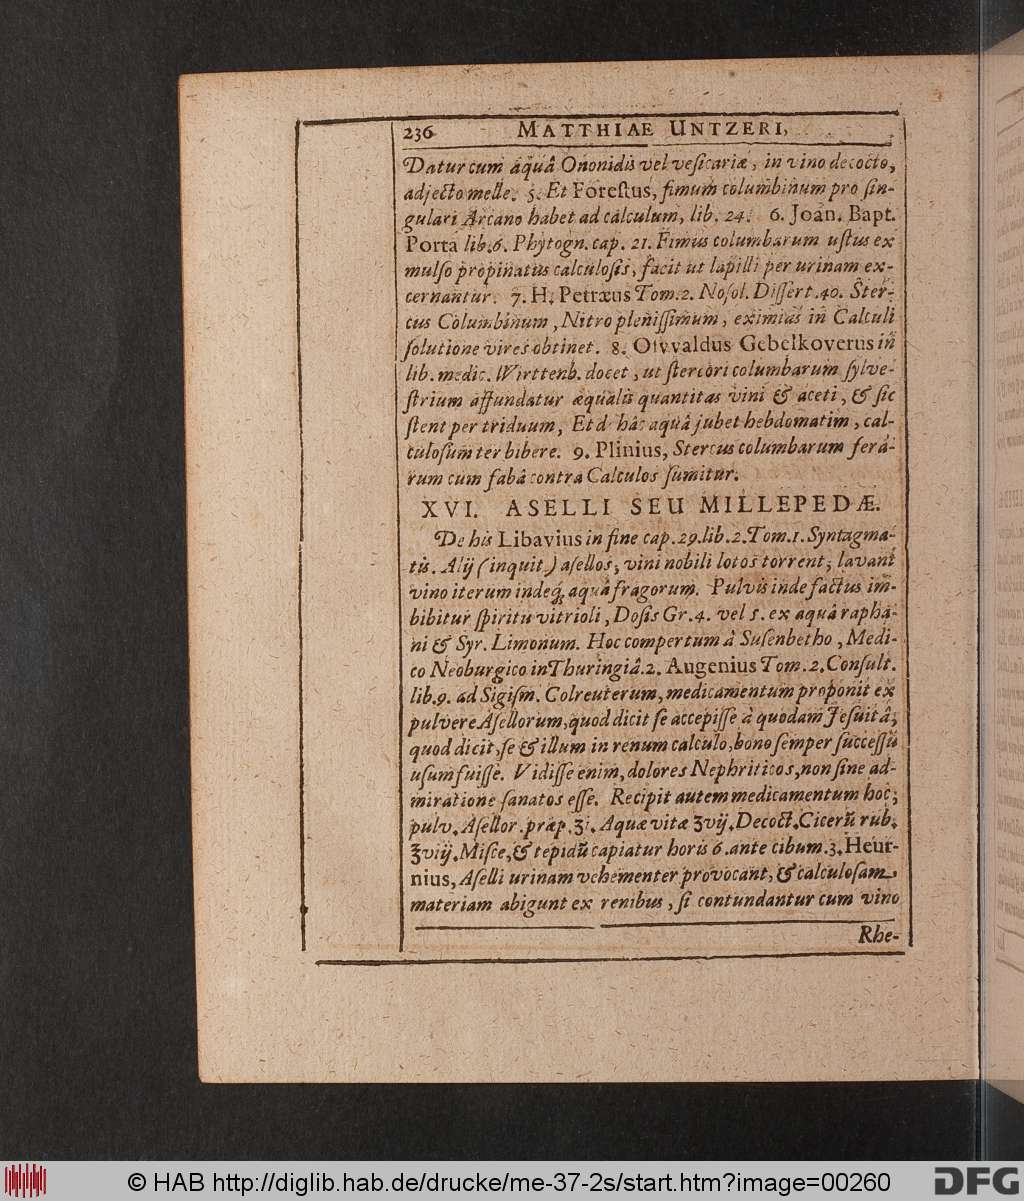 236 MATTHIAE UNTZERI,
Datur cum aquâ Ononidis vel vesicariæ, in vino decocto,
adjecto melle. 5. Et Forestus, fimum columbinum pro sin-
gulari Arcano habet ad calculum, lib. 24. 6. Joan. Bapt.
Porta lib. 6. Phytogn. cap. 21. Fimus columbarum ustus ex
mulso propinatus calculosis, facit ut lapilli per urinam ex-
cernantur. 7. H. Petræus Tom. 2. Nosol. Dissert. 40. Ster-
cus Columbinum, Nitro plenissimum, eximias in Calculi
solutione vires obtinet. 8. Oswaldus Gebelkoverus in
lib. medic. Wirttenb. docet, ut stercori columbarum sylve-
strium affundatur æqualis quantitas vini & aceti, & sic
stent per triduum, Et d hâc aquâ jubet hebdomatim, cal-
culosum ter bibere. 9. Plinius, Stercus columbarum fera-
rum cum fabâ contra Calculos sumitur.
XVI. ASELLI SEU MILLEPEDÆ.
De his Libavius in fine cap. 29. lib. 2. Tom. 1. Syntagma-
tis. Alij (inquit) asellos, vini nobili lotos torrent, lavant
vino iterum indeq; aquâ fragorum. Pulvis inde factus im-
bibitur spiritu vitrioli, Dosis Gr. 4. vel 5. ex aquâ rapha-
ni & Syr. Limonum. Hoc compertum à Susenbetho, Medi-
co Neoburgico in Thuringiâ. 2. Augenius Tom. 2. Consult.
lib. 9. ad Sigism. Colreuterum, medicamentum proponit ex
pulvere Asellorum, quod dicit se accepisse à quodam Jesuitâ,
quod dicit, se & illum in renum calculo, bono semper successu
usum fuisse. Vidisse enim, dolores Nephriticos, non sine ad-
miratione sanatos esse. Recipit autem medicamentum hoc;
pulv. Asellor. præp. ʒi. Aquæ vitæ ʒvij. Decoct. Cicerũ rub.
℥viij. Misce, & tepidũ capiatur horis 6. ante cibum. 3. Heur-
nius, Aselli urinam vehementer provocant, & calculosam
materiam abigunt ex renibus, si contundantur cum vino
Rhe-
© HAB http://diglib.hab.de/drucke/me-37-2s/start.htm?image=00260
DFG